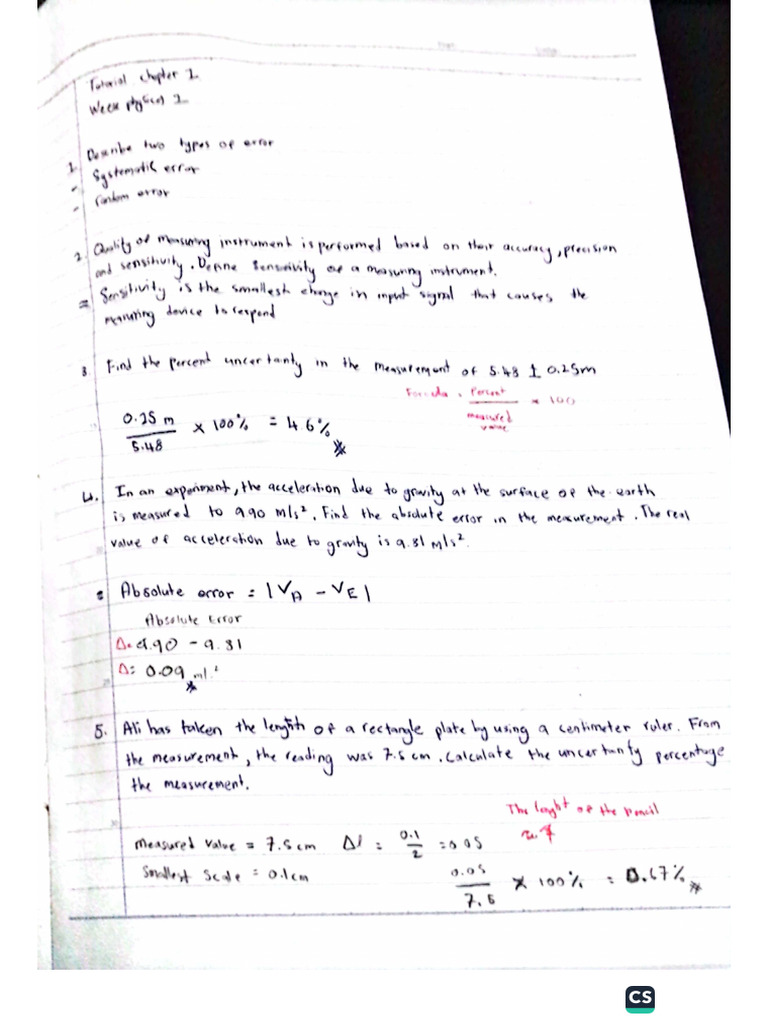 Tutorial chapter 1
Week physics 1
1. Describe two types of error
- Systematic error
- random error
2. Quality of measuring instrument is performed based on their accuracy, precision
and sensitivity. Define sensitivity of a measuring instrument.
= Sensitivity is the smallest change in input signal that causes the
measuring device to respond
3. Find the percent uncertanty in the measurement of 5.48 ± 0.25m
Formula = Percent / measured value × 100
0.25 m / 5.48 × 100% = 4.6%
4. In an experiment, the acceleration due to gravity at the surface of the earth
is measured to 9.90 m/s². Find the absolute error in the measurement. The real
value of acceleration due to gravity is 9.81 m/s².
= Absolute error = |VA - VE|
Absolute Error
Δ= 9.90 - 9.81
Δ= 0.09
5. Ali has taken the length of a rectangle plate by using a centimeter ruler. From
the measurement, the reading was 7.5 cm. Calculate the uncertanty percentage
the measurement.
The lenght of the pencil
Measured Value = 7.5cm Δl = 0.1 / 2 = 0.05
Smallest Scale = 0.1cm
0.05 / 7.5 × 100% = 0.67%
CS